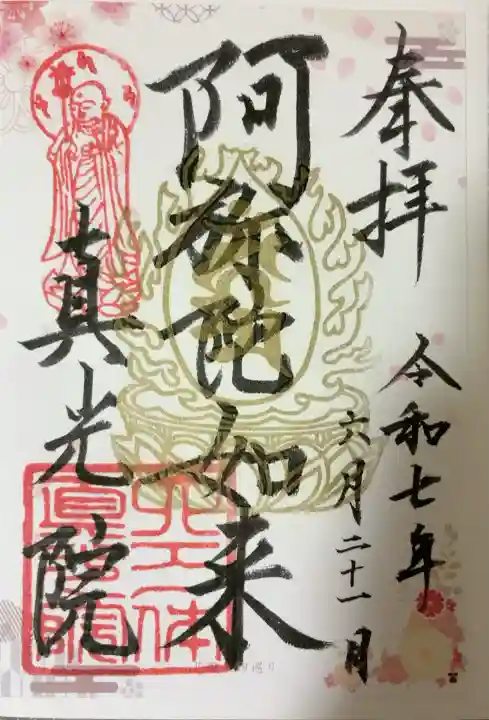 奉拝
令和七年
六月二十一日
阿弥陀如来
真光院